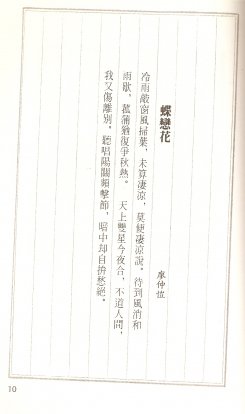 蝶戀花
廖仲愷
冷雨敲窗風掃葉，未算淒涼，莫便淒涼說。待到風消和
雨歇，菰蒲猶復爭秋熱。　天上雙星今夜合，不道人間，
我又傷離別。聽唱陽關頻擊節，暗中却自拚愁絕。
10